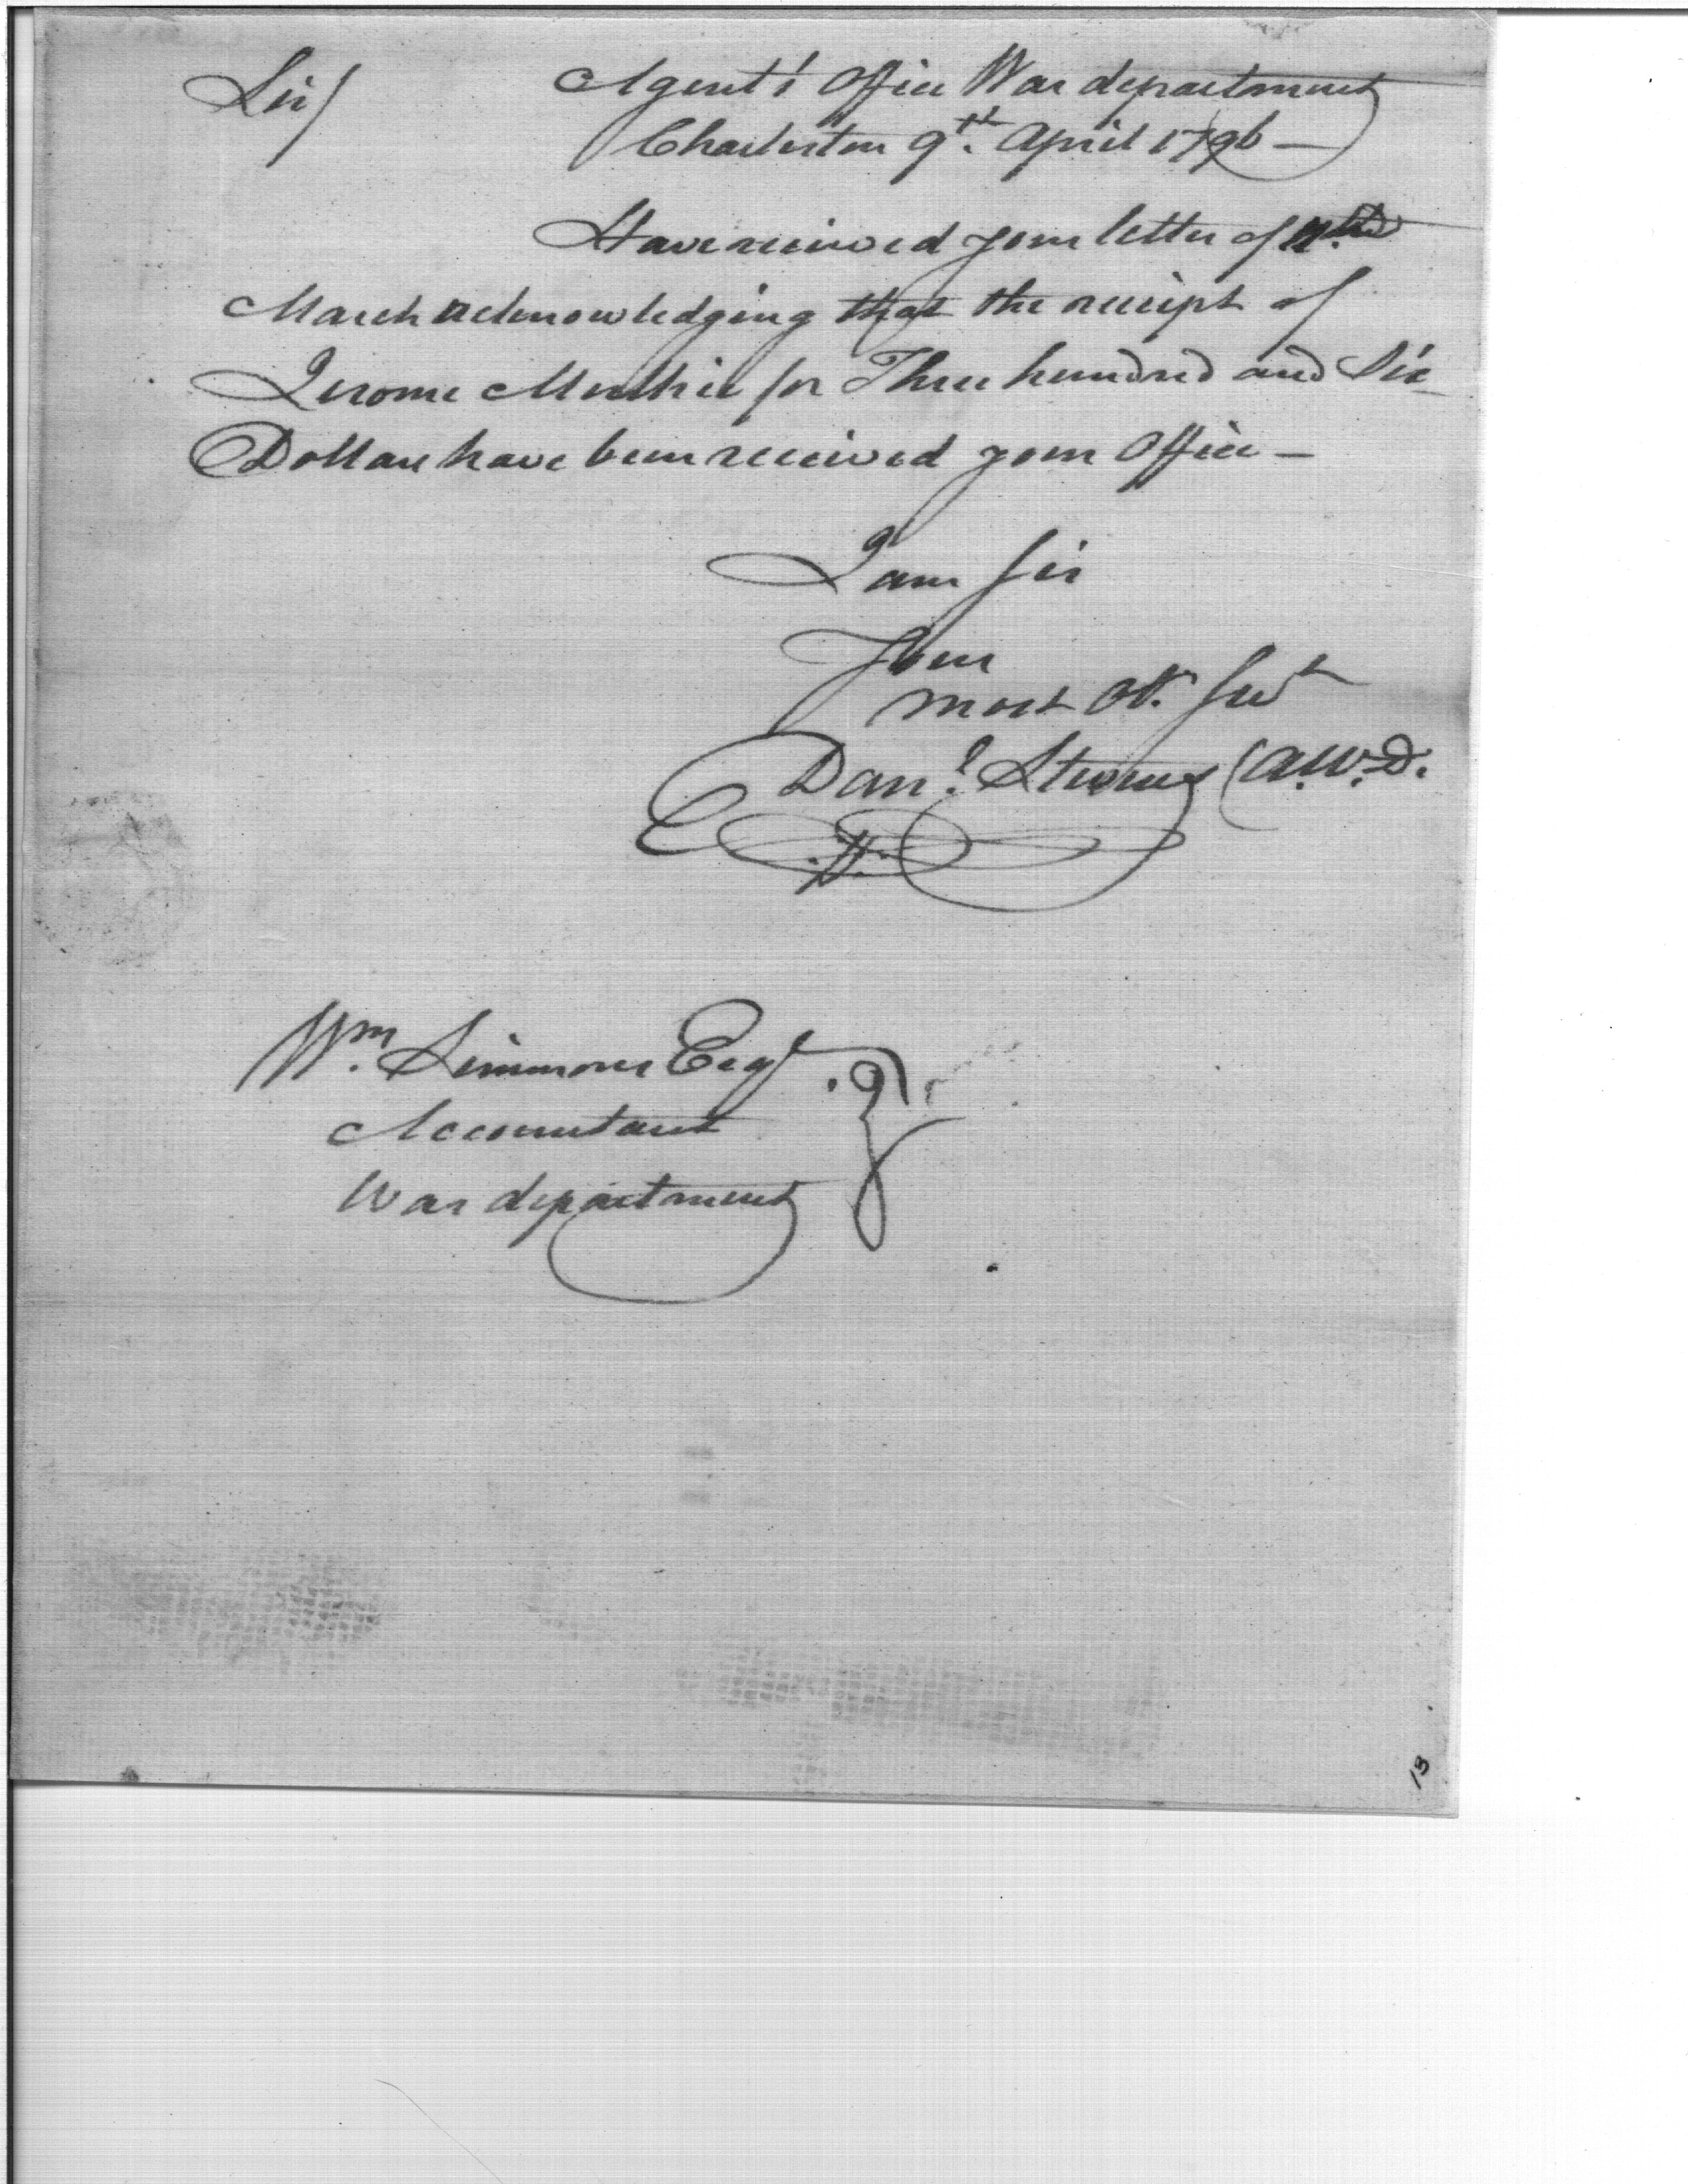 Sir/
Agent's Office War department
Charleston 9th. April 1796 —
Have received your letter of
March acknowledging that the receipt of
Jerome for Three hundred and Six
Dollars have been received your Office —
I am Sir
Your
most Ob. Servt
Danl. Stevens (A.W.D.
Wm. Simmons Esqr
Accountant
War department
13